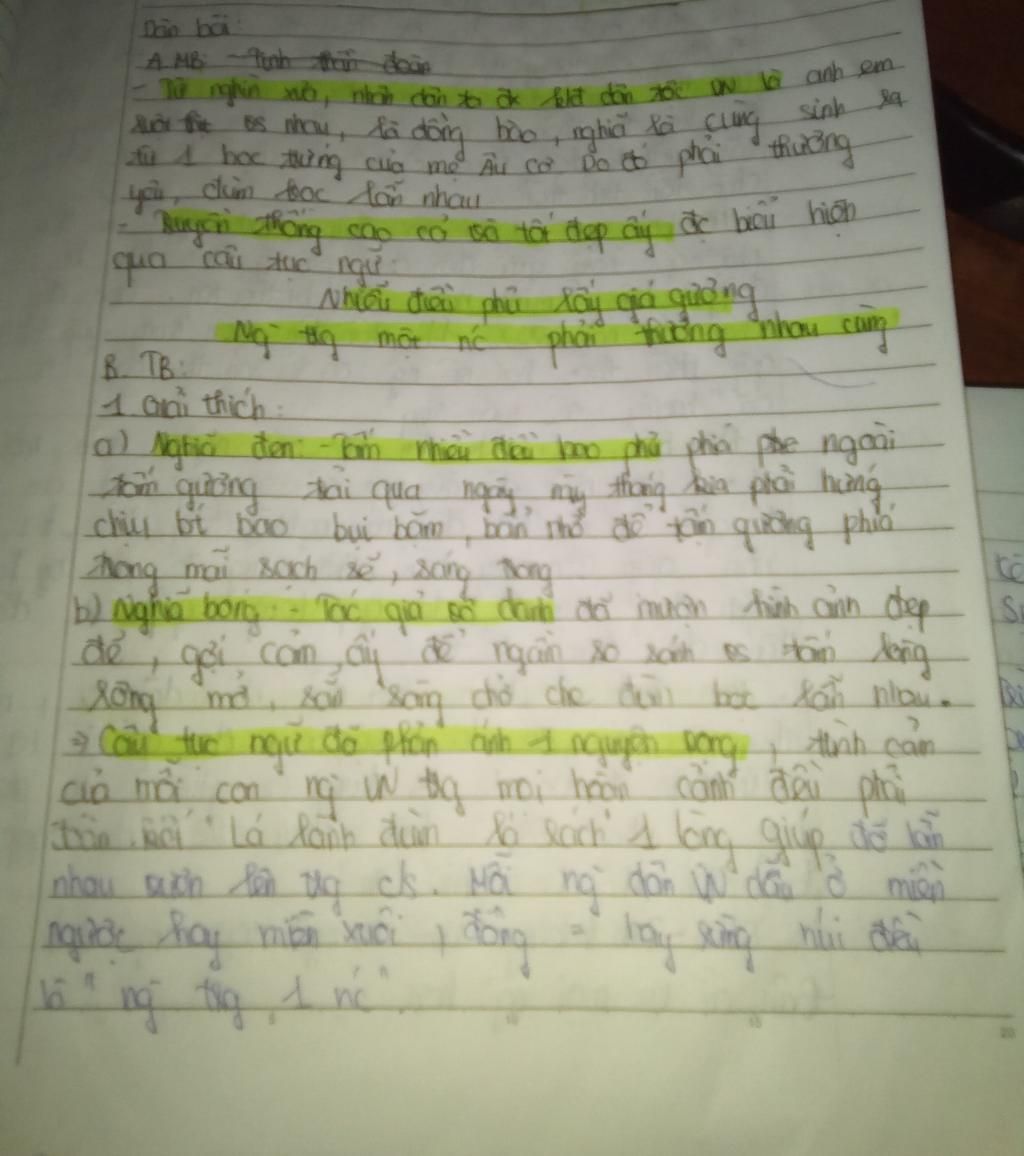 Dàn bài:
A. MB: - Tinh thần đoàn
- Từ nghìn xưa, nhân dân ta đã dân tộc VN là anh em
vs nhau, là đồng bào, nghĩa là cùng sinh ra
từ 1 bọc trứng của mẹ Âu Cơ Do đó phải thương
yêu, đùm bọc lẫn nhau
- Truyền thống cao cả và tốt đẹp ấy đc biểu hiện
qua câu tục ngữ:
Nhiễu điều phủ lấy giá gương
Ng trg một nc phải thương nhau cùng
B. TB:
1 Giải thích:
a) Nghĩa đen: - Tấm nhiễu điều bao phủ phía ngoài
tấm gương trải qua ngày này tháng kia phải hứng
chịu bụi bặm, bẩn nhớ để tấm gương phía
trong mãi sạch sẽ, sáng trong
b) Nghĩa bóng: - Tác giả đã mượn hình ảnh đẹp
đẽ, gợi cảm ấy để ngầm so sánh vs tấm lòng
rộng mở, sẵn sàng chở che đùm bọc lẫn nhau.
⇒ Câu tục ngữ đã phản ánh 1 nguyện vọng, tình cảm
của mỗi con ng VN trg mọi hoàn cảnh đều phải
"Lá lành đùm lá rách" 1 lòng giúp đỡ lẫn
nhau vươn lên trg cs. Mỗi ng dân VN dẫu ở miền
ngược hay miền xuôi, đồng = hay rừng núi đều
là "ng trg 1 nc"